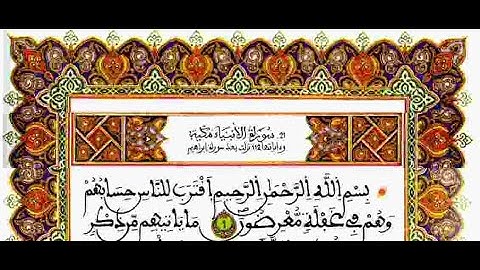 21. سورة الأنبياء مكية
وءاياتها 112 نزلت بعد سورة إبراهيم
بِسْمِ اللَّهِ الرَّحْمَٰنِ الرَّحِيمِ اقْتَرَبَ لِلنَّاسِ حِسَابُهُمْ
وَهُمْ فِي غَفْلَةٍ مُّعْرِضُونَ 1 مَا يَأْتِيهِم مِّن ذِكْرٍ